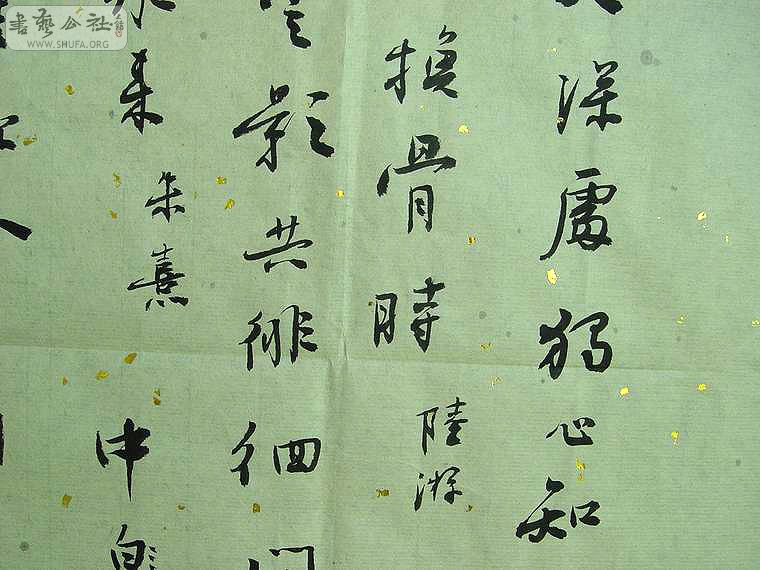 書藝公社
WWW.SHUFA.ORG
深處獨心知
換骨時 陸游
雲影共徘徊問
来 朱熹 中